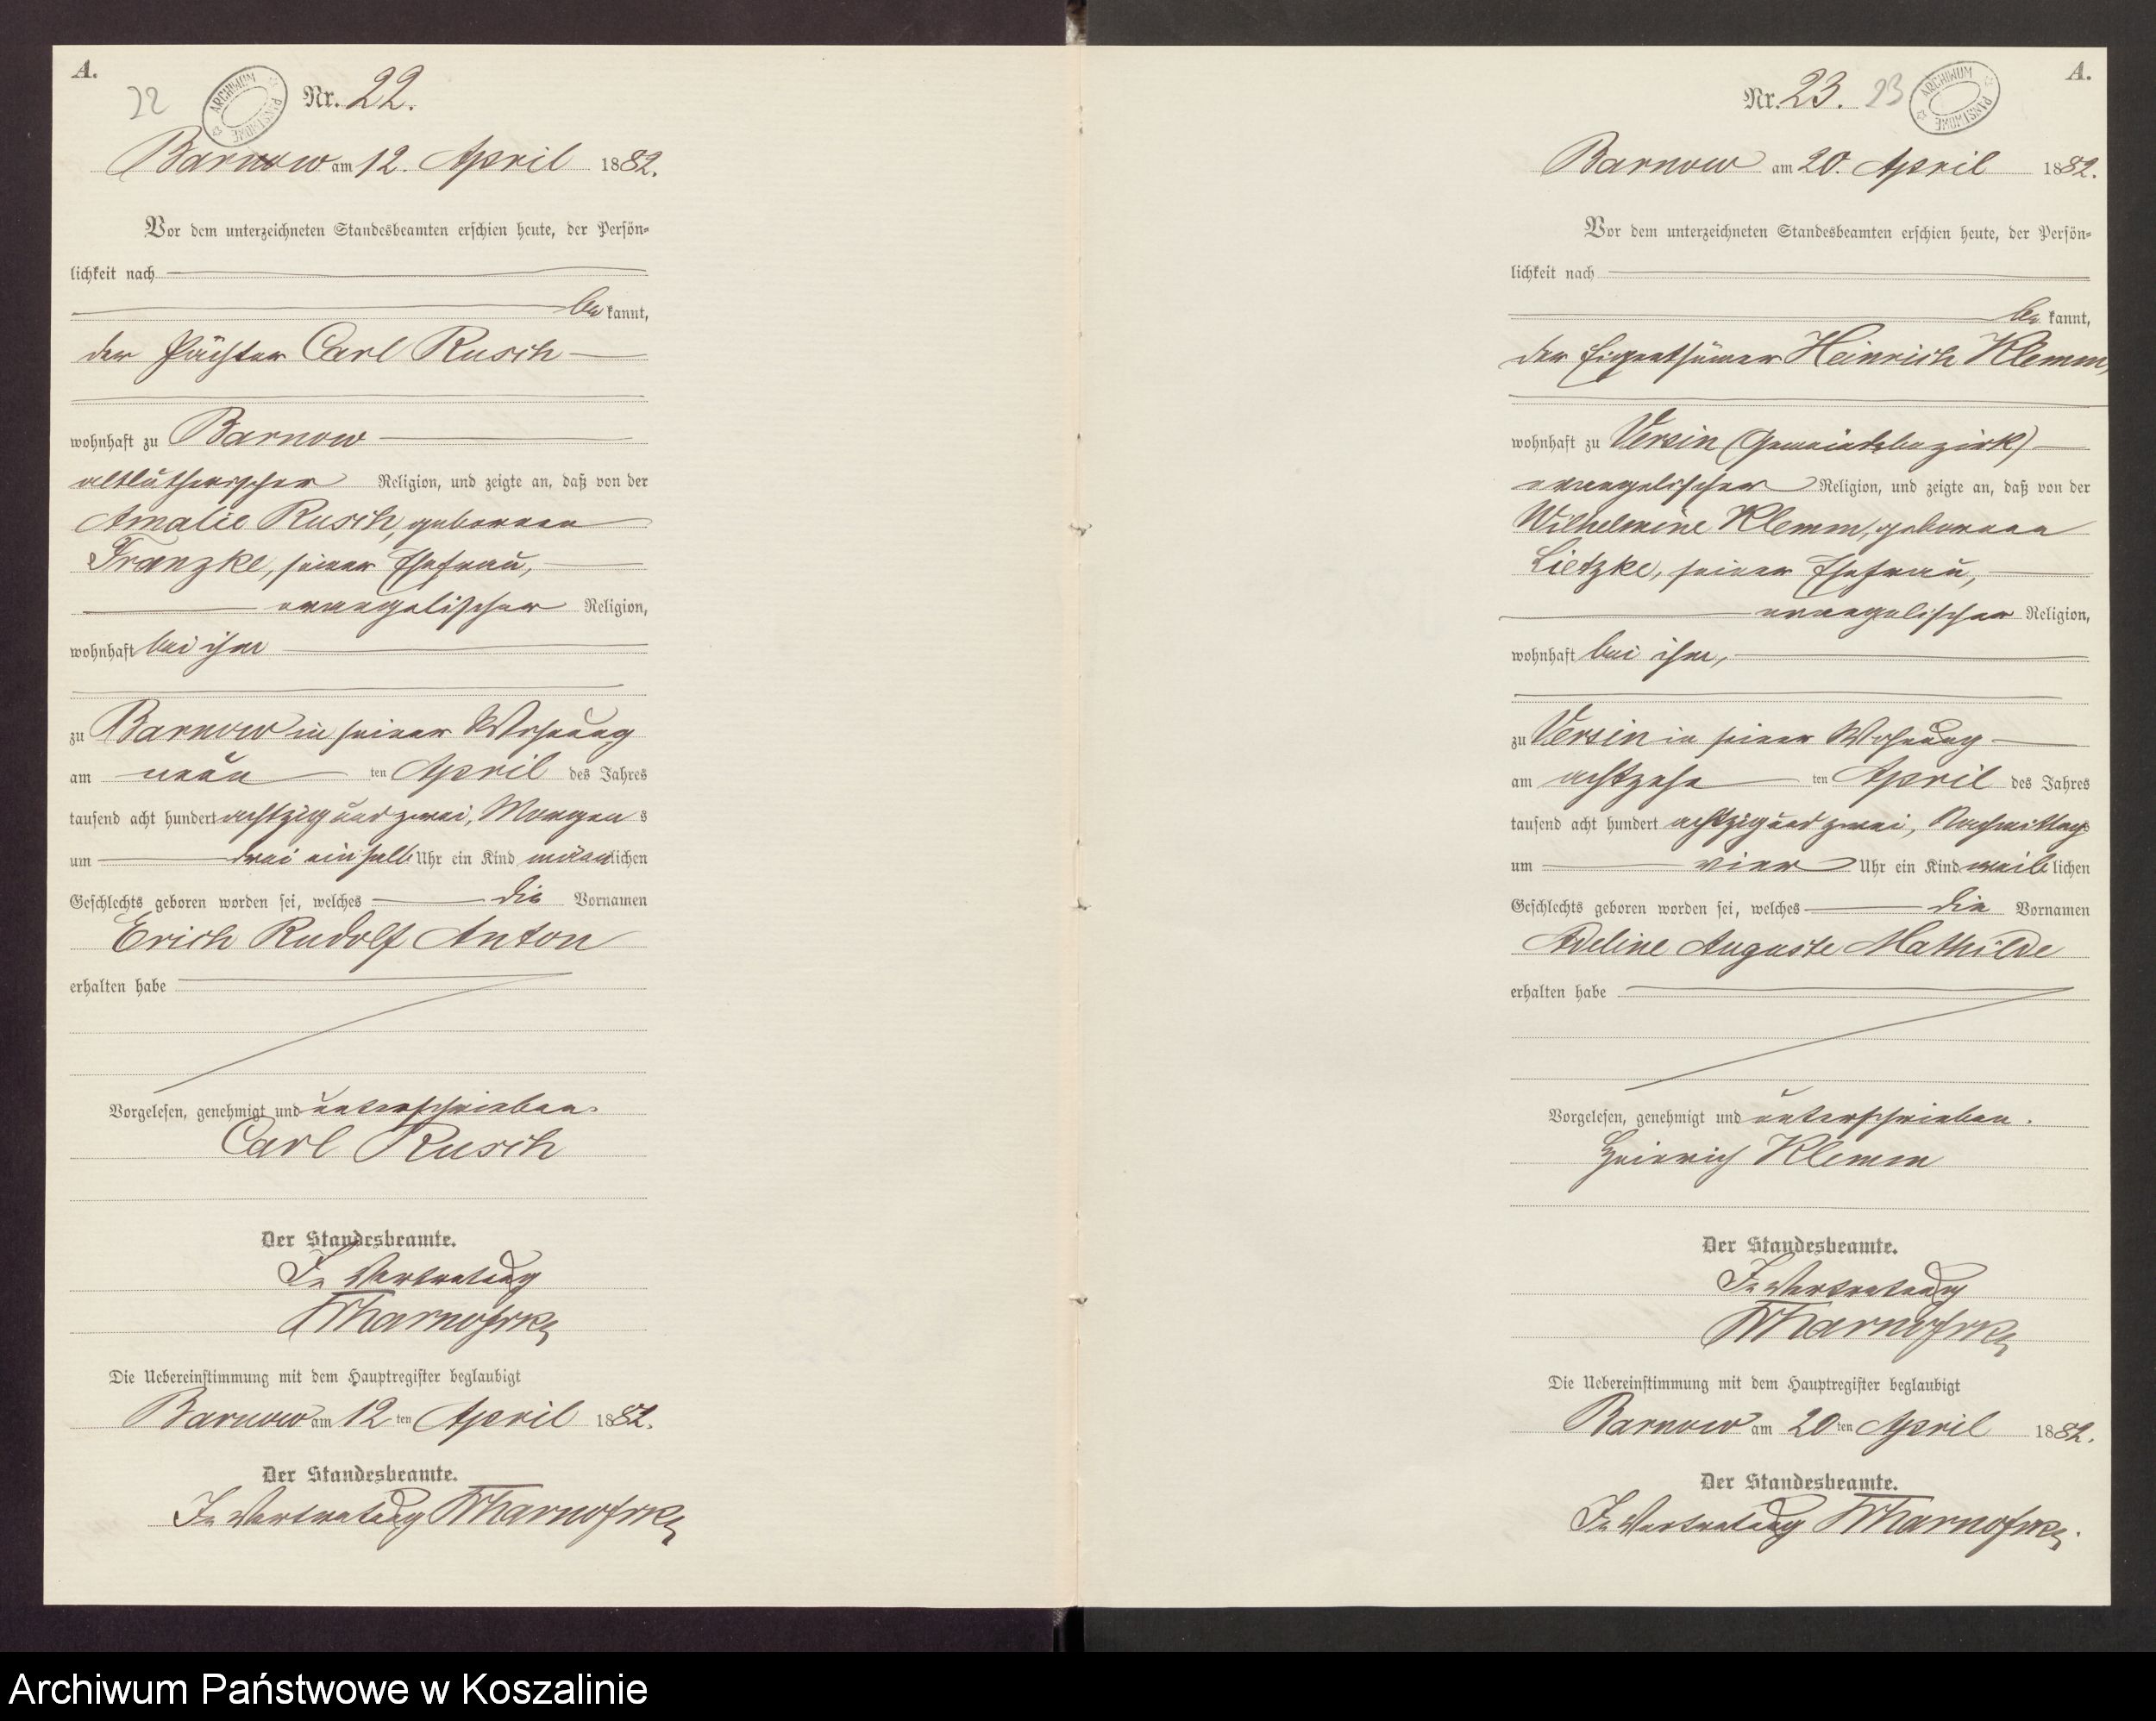 A.
22
ARCHIWUM PAŃSTWOWE
Nr. 22.
Barnow am 12. April 1882.
Vor dem unterzeichneten Standesbeamten erschien heute, der Persön-
lichkeit nach
be kannt,
der Pächter Carl Rusch
wohnhaft zu Barnow
altlutherischer Religion, und zeigte an, daß von der
Amalie Rusch, geborenen
Franzke, seiner Ehefrau,
evangelischer Religion,
wohnhaft bei ihm
zu Barnow in seiner Wohnung
am neun ten April des Jahres
tausend acht hundert achtzig und zwei, Morgens
um drei ein halb Uhr ein Kind männlichen
Geschlechts geboren worden sei, welches die Vornamen
Erich Rudolf Anton
erhalten habe
Vorgelesen, genehmigt und unterschrieben.
Carl Rusch
Der Standesbeamte.
In Vertretung
Die Uebereinstimmung mit dem Hauptregister beglaubigt
Barnow am 12 ten April 1882.
Der Standesbeamte.
In Vertretung
A.
Nr. 23. 23
ARCHIWUM PAŃSTWOWE
Barnow am 20. April 1882.
Vor dem unterzeichneten Standesbeamten erschien heute, der Persön-
lichkeit nach
be kannt,
der Eigenthümer Heinrich Klemm,
wohnhaft zu Versin (Gemeindebezirk)
evangelischer Religion, und zeigte an, daß von der
Wilhelmine Klemm, geborenen
Lietzke, seiner Ehefrau,
evangelischer Religion,
wohnhaft bei ihm,
zu Versin in seiner Wohnung
am achtzehn ten April des Jahres
tausend acht hundert achtzig und zwei, Nachmittags
um vier Uhr ein Kind weiblichen
Geschlechts geboren worden sei, welches die Vornamen
Adeline Auguste Mathilde
erhalten habe
Vorgelesen, genehmigt und unterschrieben.
Heinrich Klemm
Der Standesbeamte.
In Vertretung
Die Uebereinstimmung mit dem Hauptregister beglaubigt
Barnow am 20 ten April 1882.
Der Standesbeamte.
In Vertretung
Archiwum Państwowe w Koszalinie